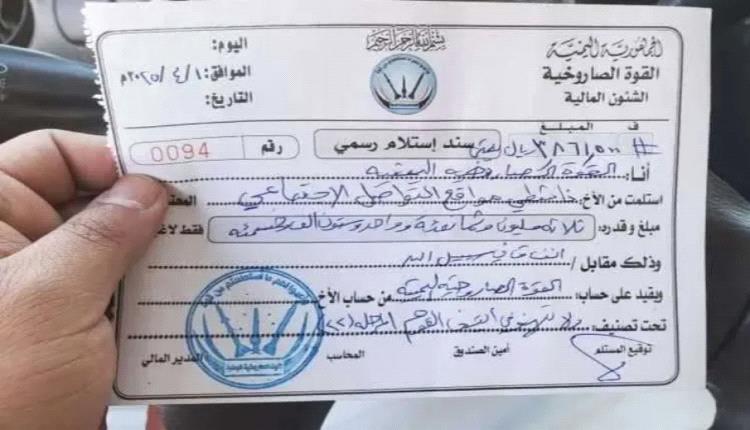 بسم الله الرحمن الرحيم
الجمهورية اليمنية
القوة الصاروخية
الشئون المالية
اليوم:
الموافق: ٢٠٢٥/٤/١م
التاريخ:
المبلغ
ف
# ٣٨٦١٥٠٠ ريال يمني
سند إستلام رسمي
رقم 0094
أنا: القوة الصاروخية اليمنية
استلمت من الأخ: ناشطي مواقع التواصل الاجتماعي المحترم
مبلغ وقدره: ثلاثة مليون وثمانمئة وواحد وستون الف وخمسمئة فقط لاغير
وذلك مقابل / انفاق في سبيل الله
ويقيد على حساب: القوة الصاروخية اليمنية من حساب الأخ
تحت تصنيف: ولا تهنوا في ابتغاء القوم المرحلة (٢٢)
توقيع المستلم
أمين الصندوق
المحاسب
المدير المالي